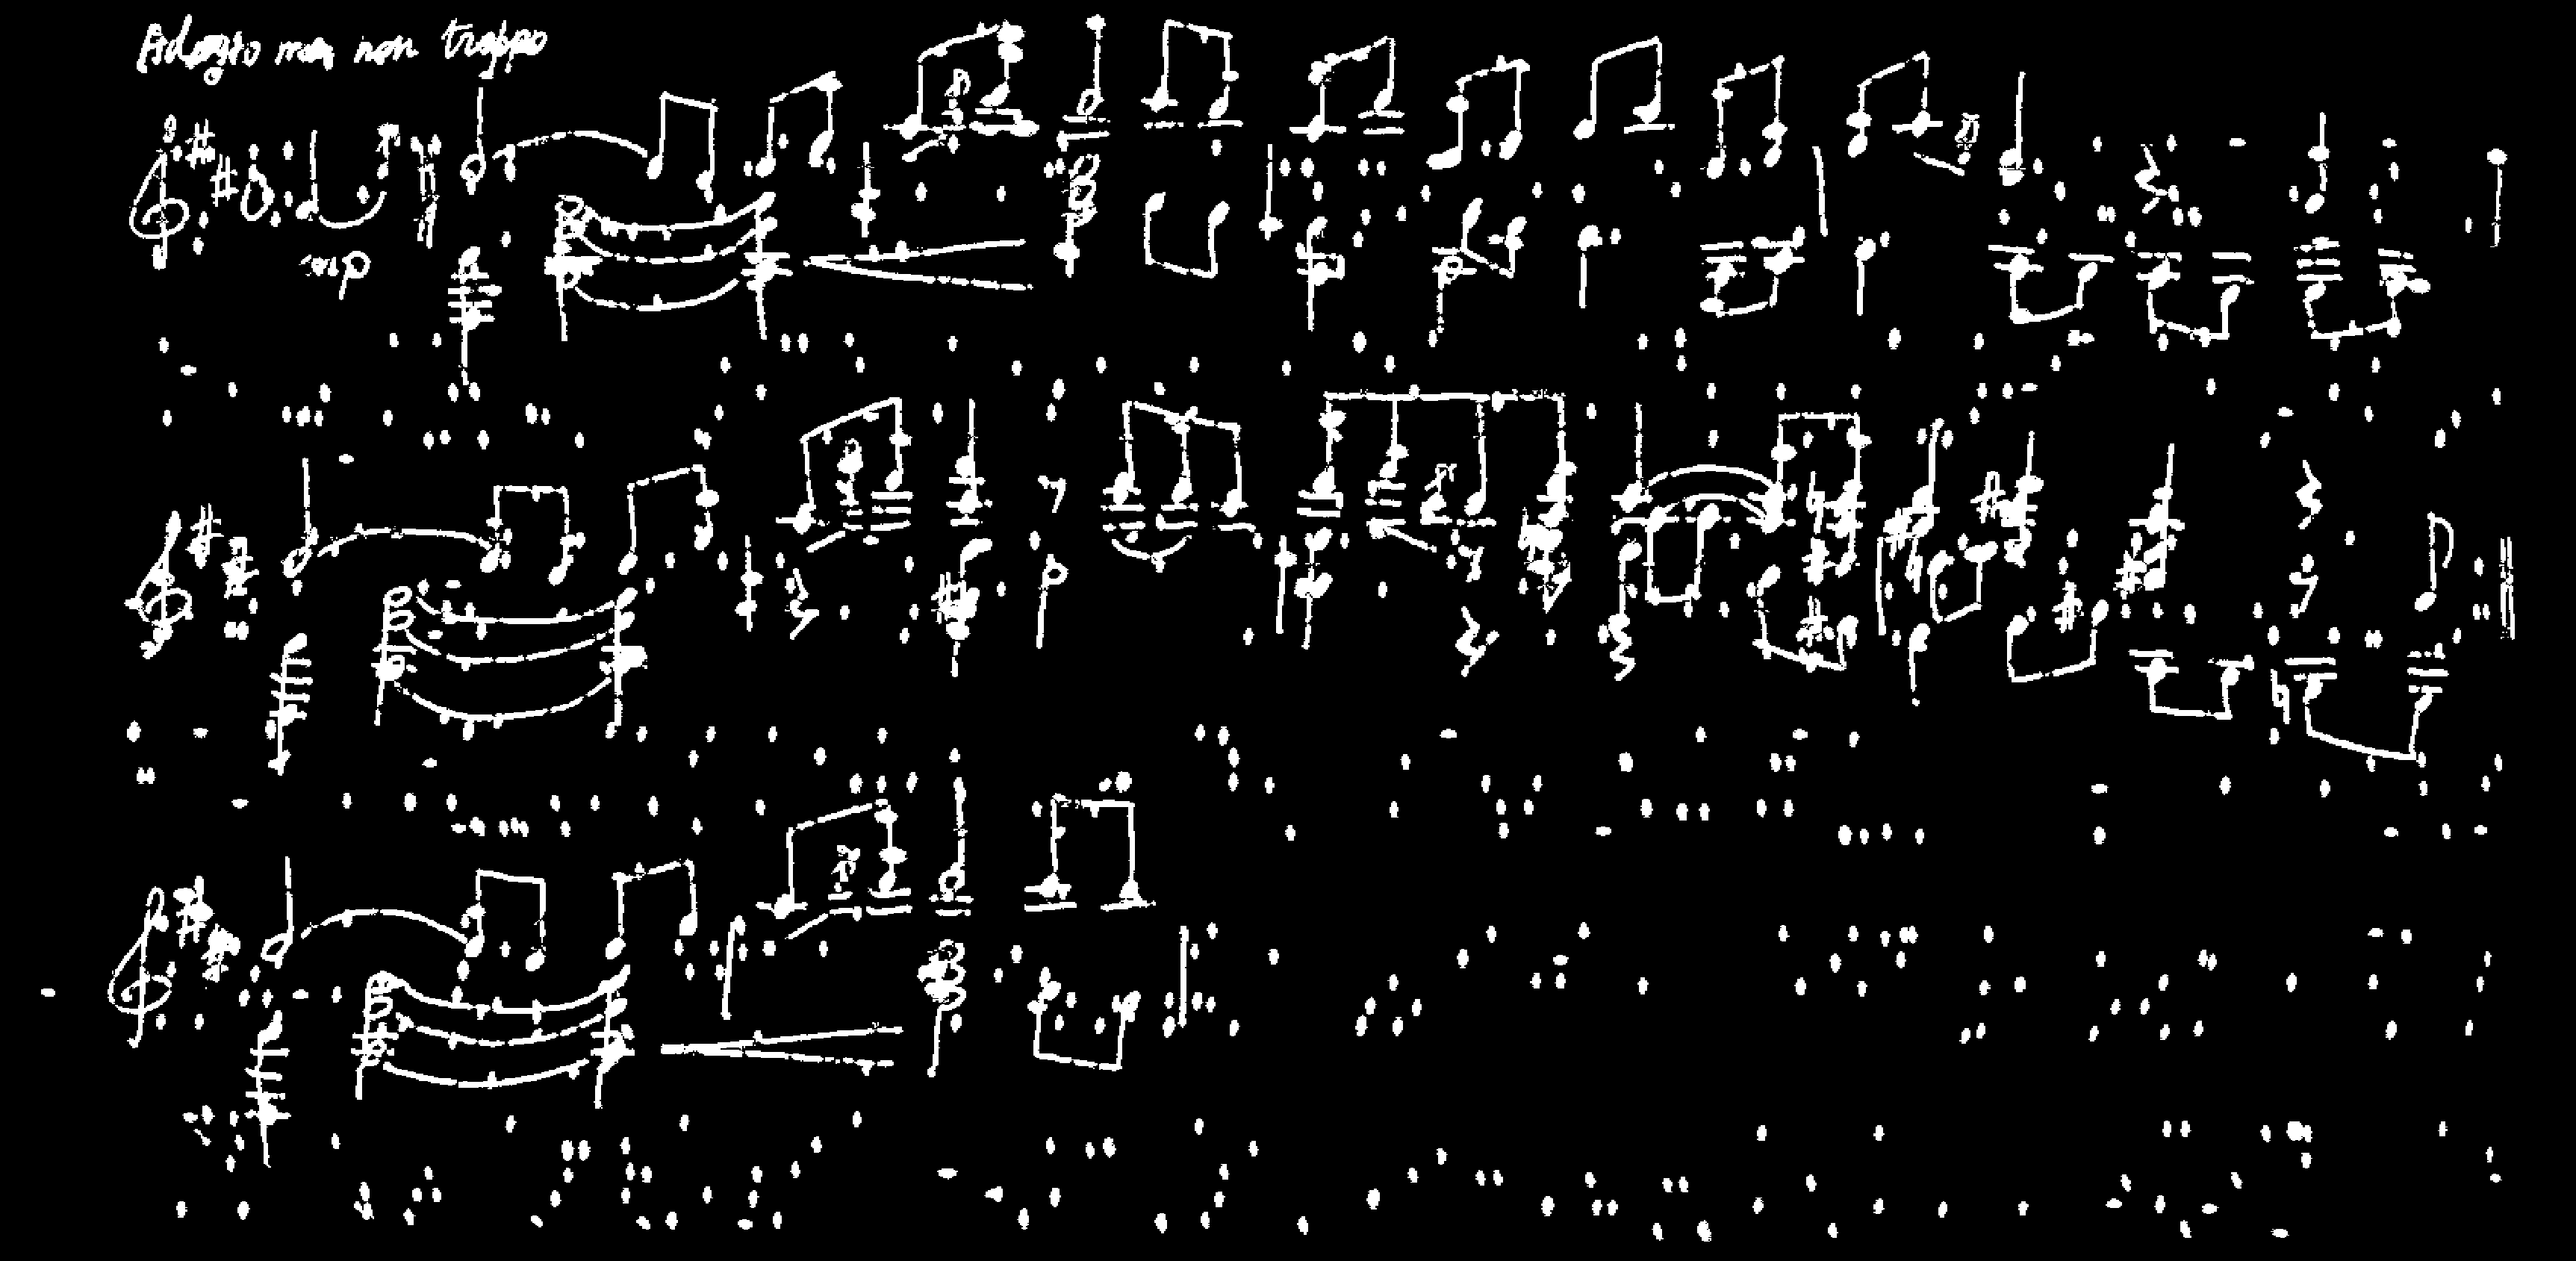 Adagio man non troppo